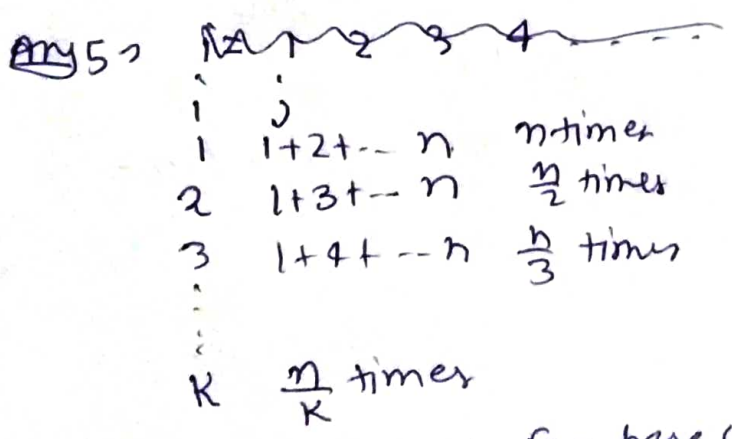 Ans 5 → 1 2 3 4 .....
i j
1 1+2+-- n n times
2 1+3+-- n n/2 times
3 1+4+ --n n/3 times
K n/K times